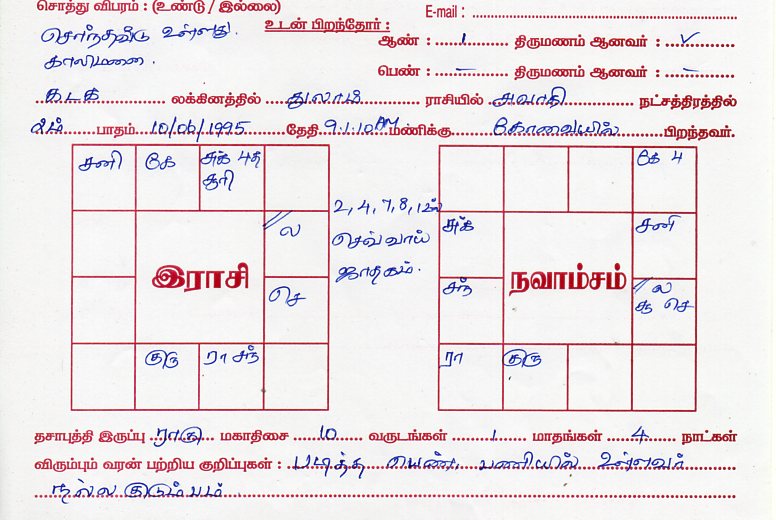 சொத்து விபரம் : (உண்டு / இல்லை)
E-mail :
சொந்தவீடு உள்ளது.
உடன் பிறந்தோர் :
ஆண் : 1 திருமணம் ஆனவர் : ✓
காலிமனை.
பெண் : – திருமணம் ஆனவர் : –
கடக லக்கினத்தில் துலாம் ராசியில் சுவாதி நட்சத்திரத்தில்
2ம் பாதம் 10/06/1995 தேதி 9.1.10 AM மணிக்கு கோவையில் பிறந்தவர்.
சனி கே சுக் 4த
சூரி
ல
செ
இராசி
குரு ரா சந்
2, 4, 7, 8, 12ல்
செவ்வாய்
ஜாதகம்.
கே 4
சுக் சனி
சந் ல
சூ செ
நவாம்சம்
ரா குரு
தசாபுத்தி இருப்பு ராகு மகாதிசை 10 வருடங்கள் 1 மாதங்கள் 4 நாட்கள்
விரும்பும் வரன் பற்றிய குறிப்புகள் : படித்த பெண், பணியில் உள்ளவர்
நல்ல குடும்பம்